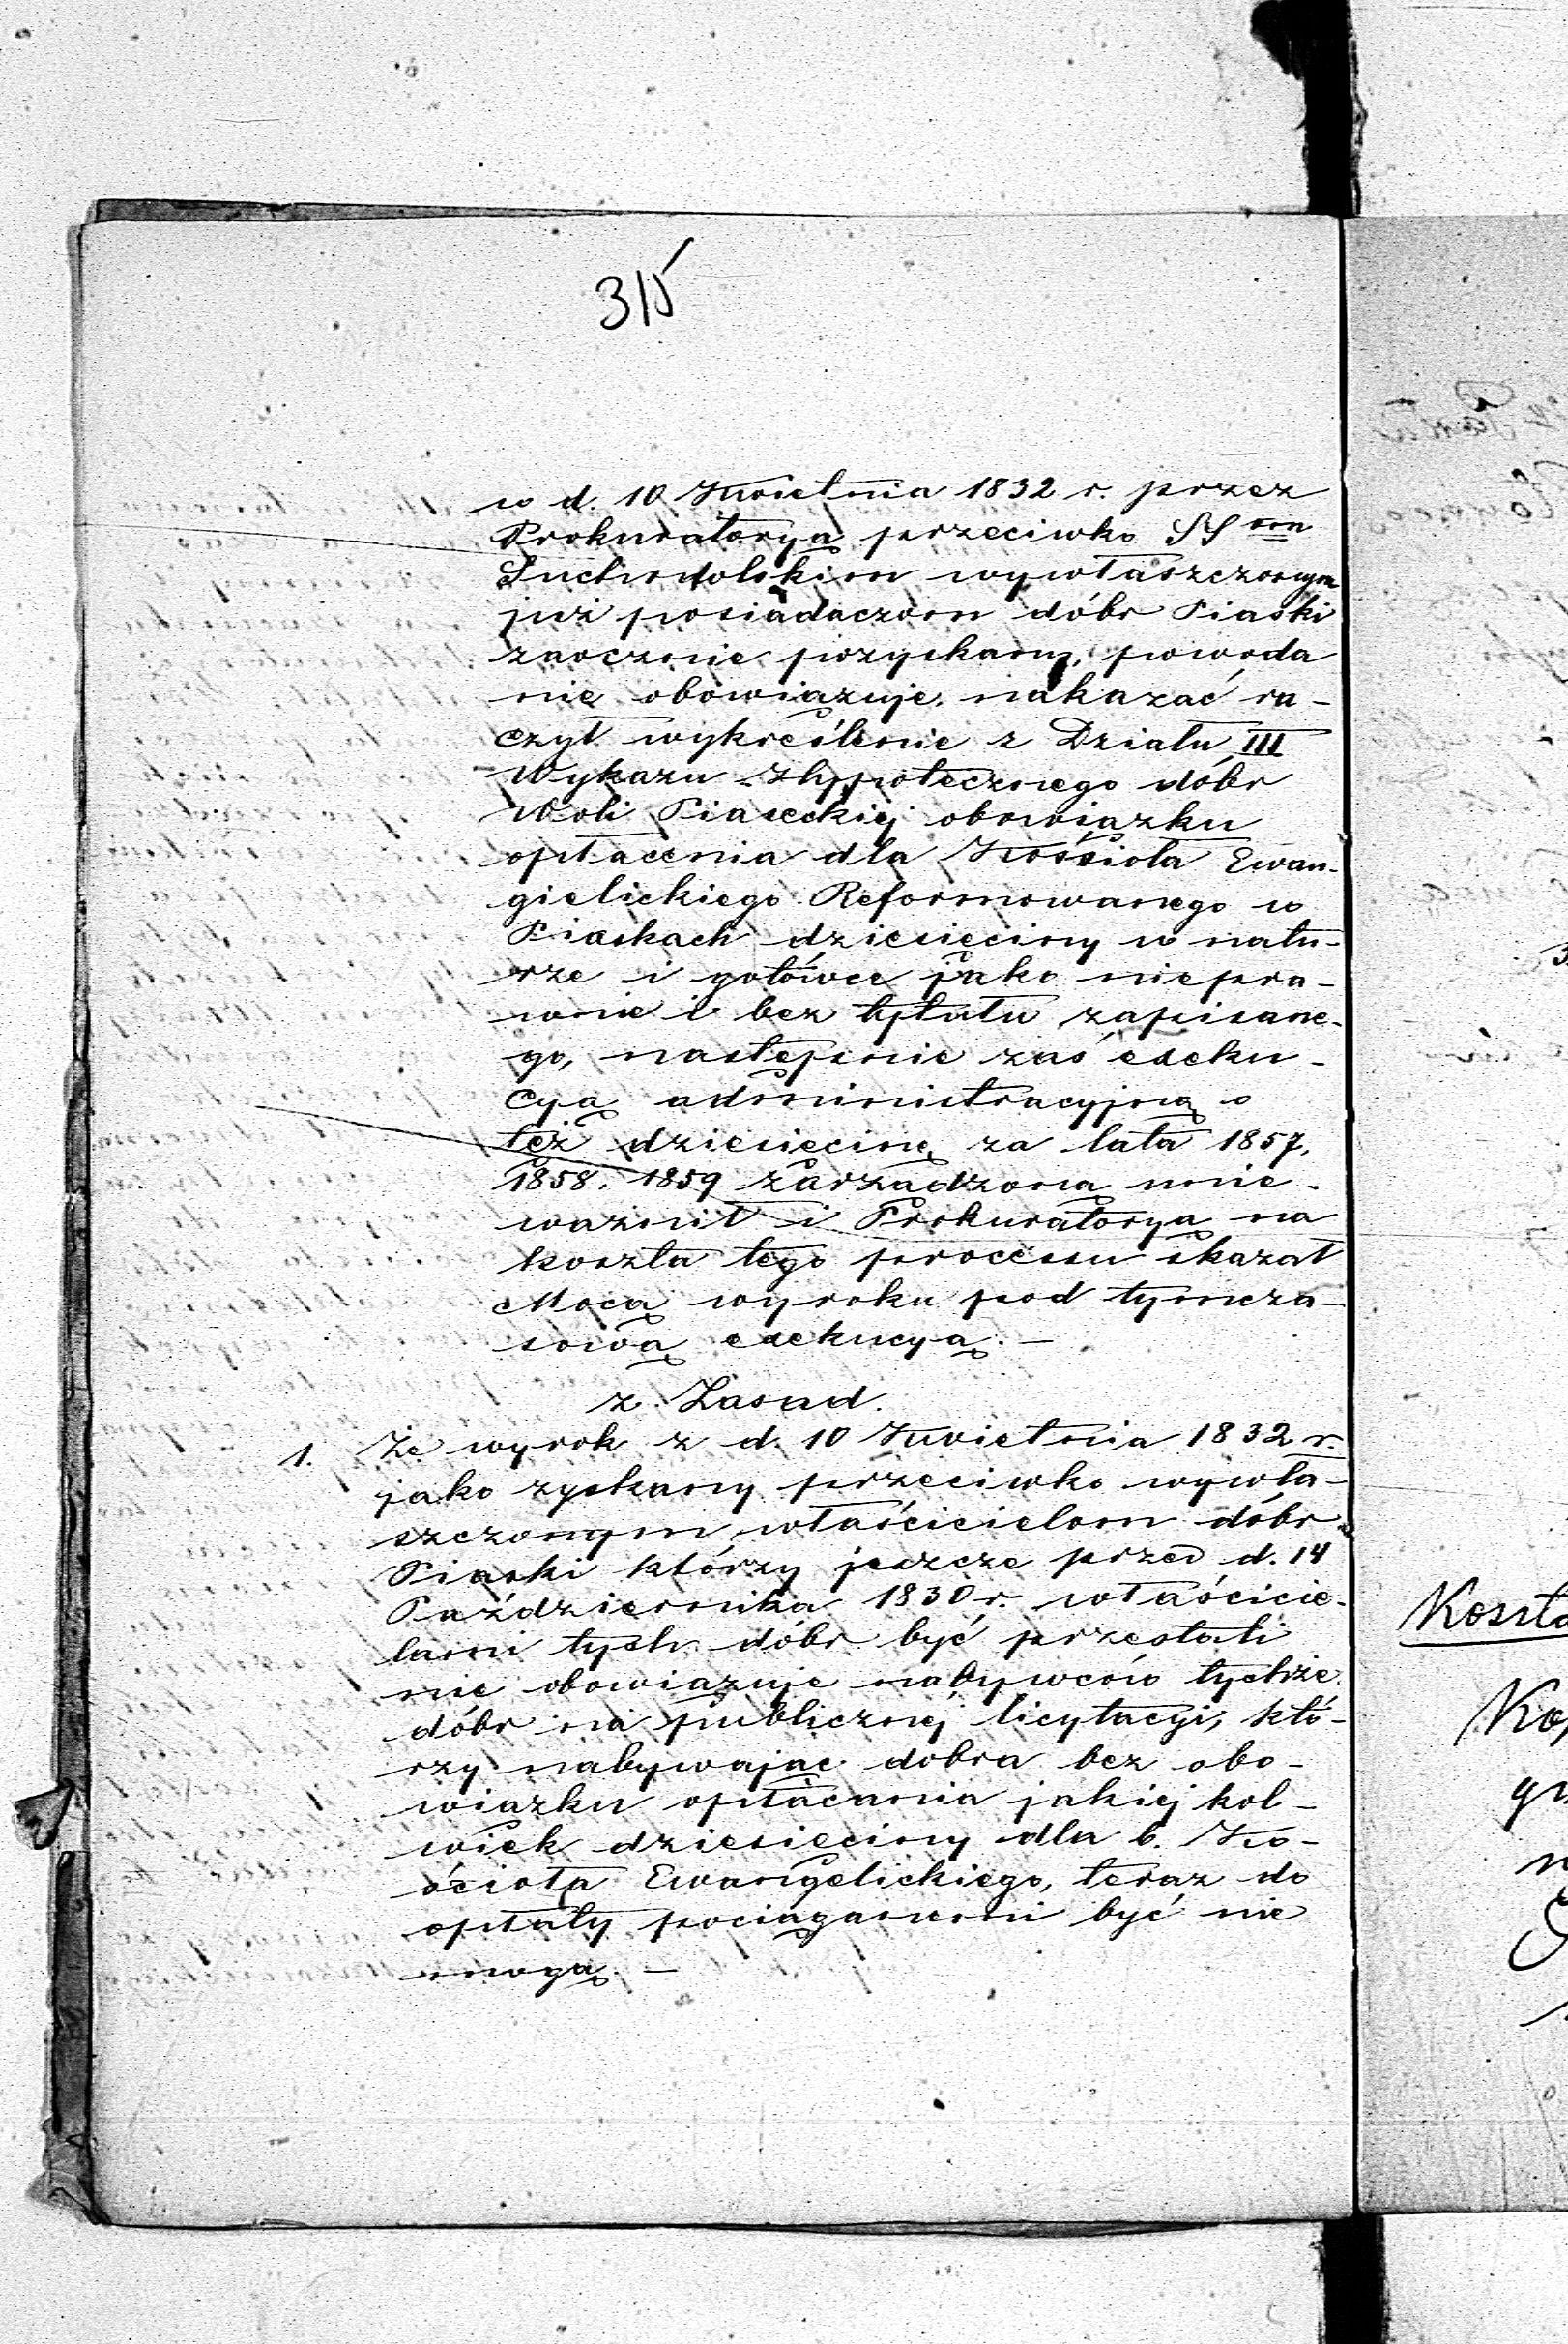 315
w d. 10 Kwietnia 1832 r. przez
Prokuratoryą przeciwko SS rom
Suchodolskim wywłaszczonym
już posiadaczom dóbr Piaski
zaocznie pozyskany, powoda
nie obowiązuje, nakazać ra-
czył wykreślenie z Działu III
Wykazu Hypotecznego dóbr
Woli Piaseckiej obowiązku
opłacenia dla Kościoła Ewan-
gielickiego Reformowanego w
Piaskach dziesięciny w natu-
rze i gotówce jako niepra-
wnie i bez tytułu zapisane-
go, następnie zaś exeku-
cyą administracyjną o
też dziesięcinę za lata 1857,
1858, 1859 zarządzoną unie-
ważnił i Prokuratoryą na
koszta tego processu skazał
Mocą wyroku pod tymcza-
sową exekucyą. —
z Zasad.
1. Że wyrok z d. 10 Kwietnia 1832 r.
jako zyskany przeciwko wywła-
szczonym właścicielom dóbr
Piaski którzy jeszcze przed d. 14
Października 1830 r. właścicie-
lami tych dóbr być przestali
nie obowiązuje nabywców tychże
dóbr na publicznej licytacyi, któ-
rzy nabywając dobra bez obo-
wiązku opłacania jakiej kol-
wiek dziesięciny dla b. Ko-
ścioła Ewangelickiego, teraz do
opłaty pociąganemi być nie
mogą. —
Koszta